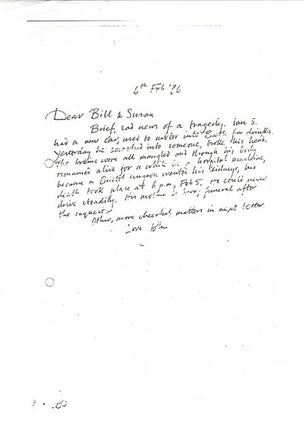 6th Feb '76
Dear Bill & Susan
Brief, sad news of a tragedy, Ian S.
had a new car, used to motor into Bath for drinks.
Yesterday he smashed into someone, broke his head.
The brains were all mangled and though his body
remained alive for a while in a hospital machine,
because a Bristol surgeon wanted his kidneys, his
death took place at 6 p.m, Feb 5. He could never
drive steadily. His mother is here; funeral after
the inquest.
Other, more cheerful matters in next letter
Love